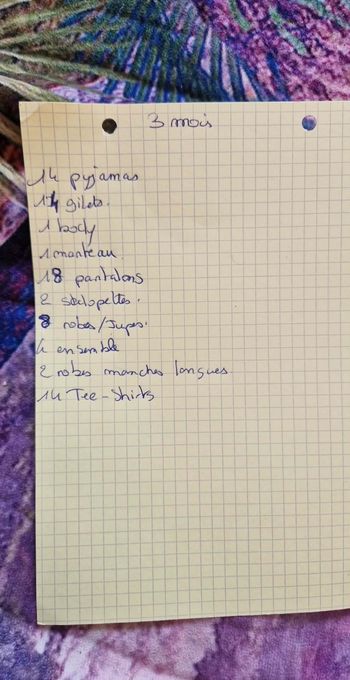 3 mois
14 pyjamas
14 gilets.
1 body
1 manteau.
18 pantalons
2 salopettes.
8 robes/Jupes.
4 ensemble
2 robes manches longues
14 Tee-Shirts